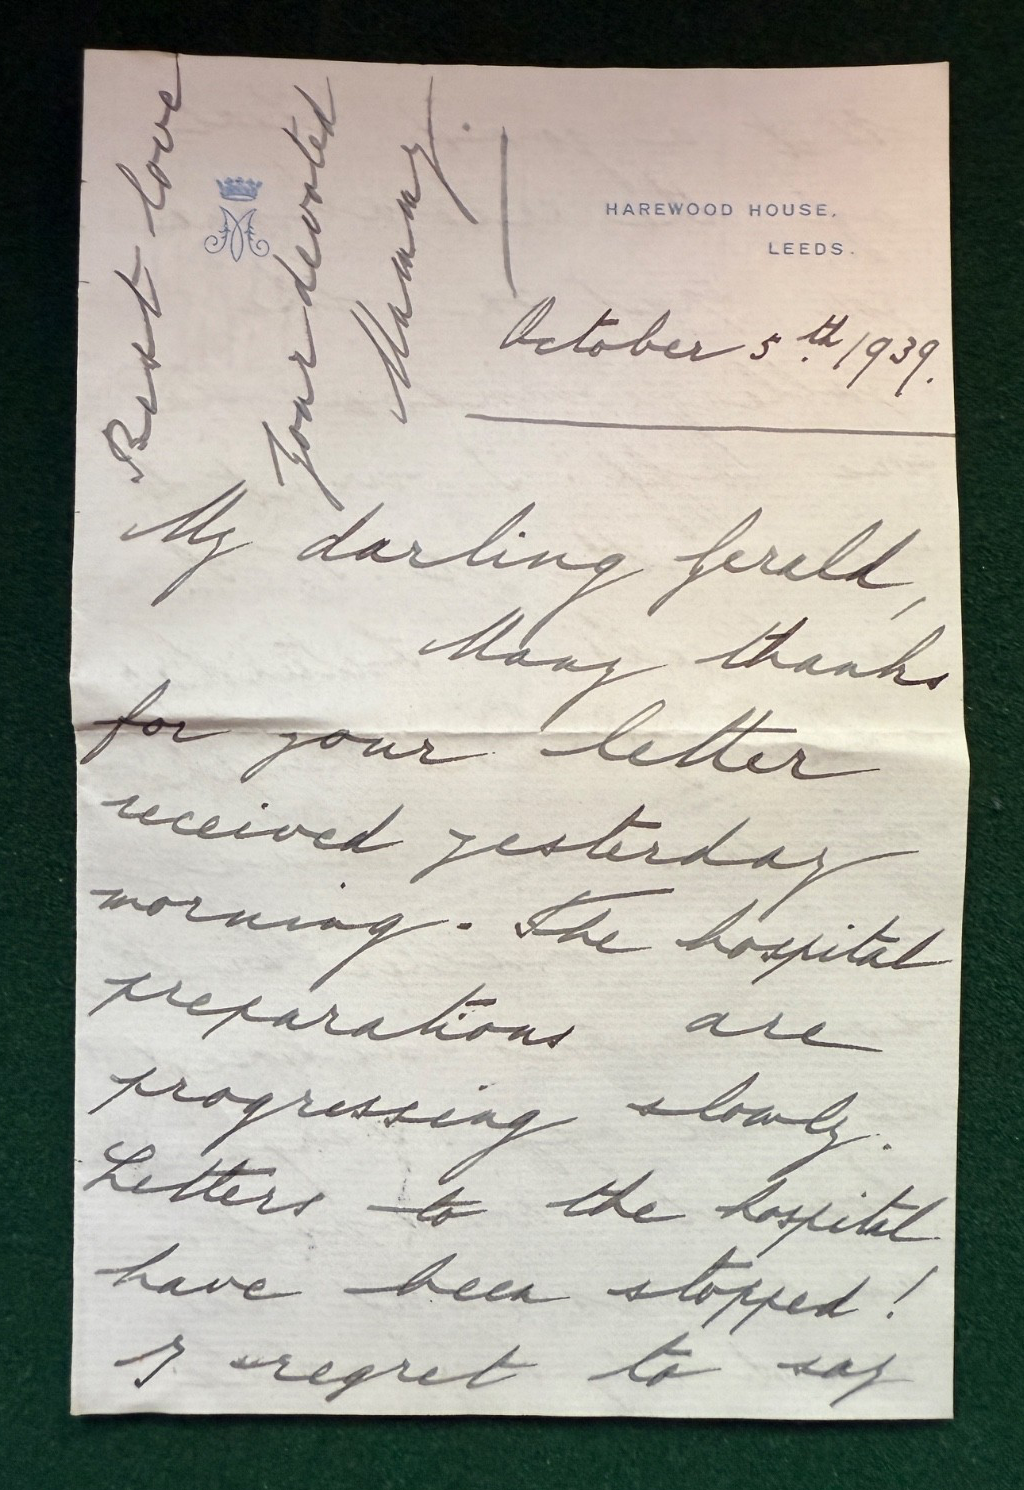 HAREWOOD HOUSE,
LEEDS.
October 5th 1939.
My darling Gerald,
Many thanks
for your letter
received yesterday
morning. The hospital
preparations are
progressing slowly.
Letters to the hospital
have been stopped!
I regret to say
Best love
Your devoted
Mummy.